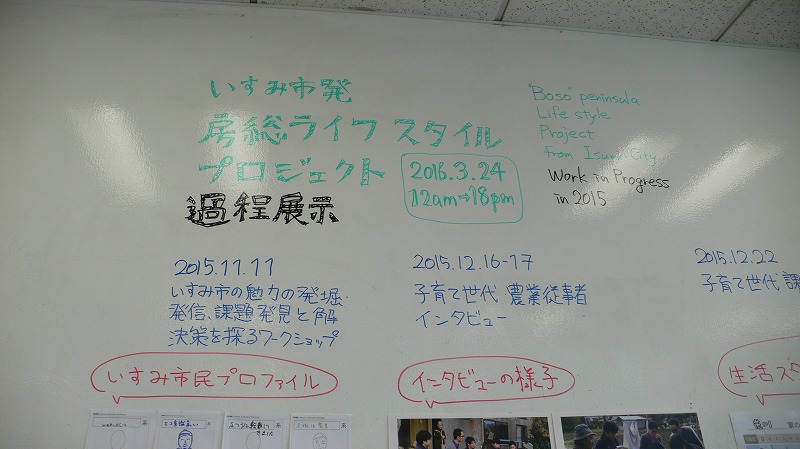 いすみ市発
房総ライフスタイル
プロジェクト
過程展示
2016.3.24
12am→18pm
'Boso' peninsula
Life style
Project
from Isumi City
Work in Progress
in 2015
2015.11.11
いすみ市の魅力の発掘
発信、課題発見と解
決策を探るワークショップ
いすみ市民プロファイル
2015.12.16-17
子育て世代 農業従事者
インタビュー
インタビューの様子
2015.12.22
子育て世代 課
生活ス